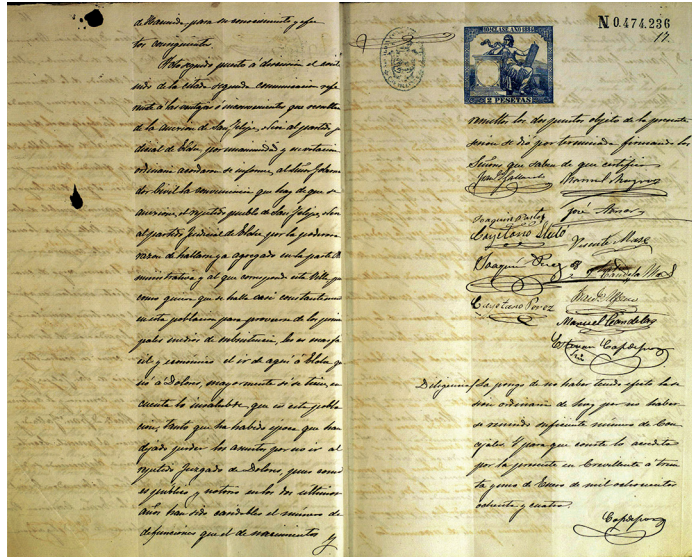 de Hacienda, para su conocimiento y efec
tos consiguientes.
Acto seguido puesto á discusion el conte
nido de la citada segunda comunicacion refe
rente á las ventajas ó inconvenientes que resulten
de la anexion de San Felipe, Neri al partido ju
dicial de Elche, por unanimidad y en votacion
ordinaria acordaron se informe, al Señor Goberna
dor Civil la conveniencia que hay de que se
anexione, el repetido pueblo de San Felipe, Neri
al partido Judicial de Elche, por la poderosa
razon de hallarse ya agregado en la parte Ad
ministrativa y al que corresponde esta Villa que
como quiera que se halla casi constantemente
en esta poblacion para proveerse de los princi
pales medios de subsistencia, les es mas fa
cil y económico el ir de aqui á Elche que
no á Dolores, mayormente si se tiene, en
cuenta lo insalubre, que es esta pobla
cion, tanto que ha habido epoca que han
dejado perder los asuntos por no ir al
repetido Juzgado de Dolores, pues como
es publico y notorio en los dos ultimos
años han sido considerables el número de
defunciones que el de nacimientos y
N 0.474.236
17.
2 PESETAS
resueltos los dos puntos objeto de la presente
sesion se dió por terminada firmando los
Señores que saben de que certifico
Manuel
Joaquin
José
Cayetano
Vicente Mas
Joaquin
Candela
Cayetano Perez
Manuel Candela
Estevan Capdepon
Diligencia / La pongo de no haber tenido efecto la se
sion ordinaria de hoy por no haber
se reunido suficiente número de Con
cejales. Y para que conste lo acredito
por la presente en Crevillente á trein
ta y uno de Enero de mil ochocientos
ochenta y cuatro.
Capdepon